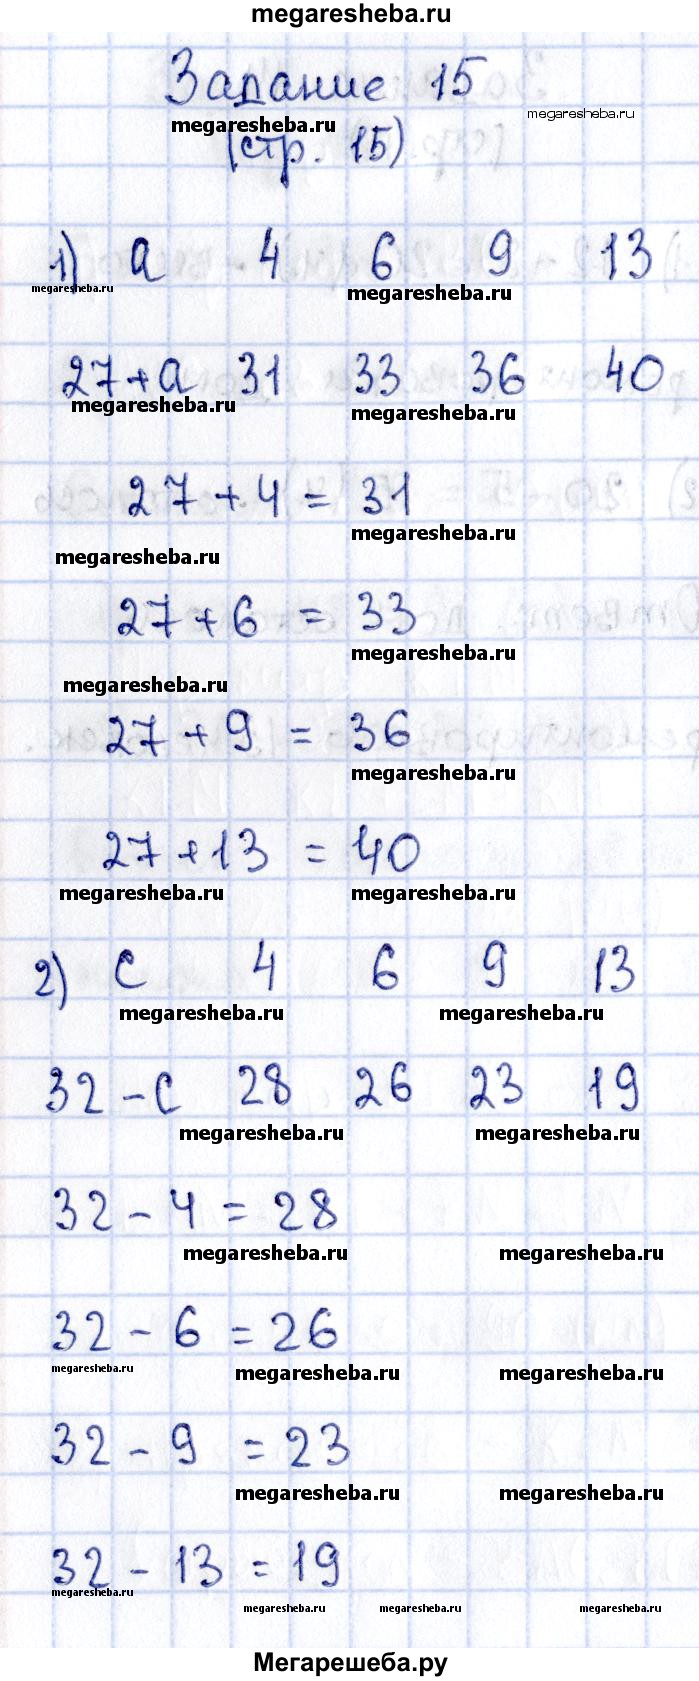 megaresheba.ru
Задание 15
megaresheba.ru megaresheba.ru
(стр. 15)
1) а 4 6 9 13
megaresheba.ru megaresheba.ru
27+а 31 33 36 40
megaresheba.ru megaresheba.ru
27 + 4 = 31
megaresheba.ru megaresheba.ru
27 + 6 = 33
megaresheba.ru megaresheba.ru
27 + 9 = 36
megaresheba.ru
27 + 13 = 40
megaresheba.ru megaresheba.ru
2) с 4 6 9 13
megaresheba.ru megaresheba.ru
32 - с 28 26 23 19
megaresheba.ru megaresheba.ru
32 - 4 = 28
megaresheba.ru megaresheba.ru
32 - 6 = 26
megaresheba.ru megaresheba.ru megaresheba.ru
32 - 9 = 23
megaresheba.ru megaresheba.ru
32 - 13 = 19
megaresheba.ru megaresheba.ru megaresheba.ru megaresheba.ru
Мегарешеба.ру